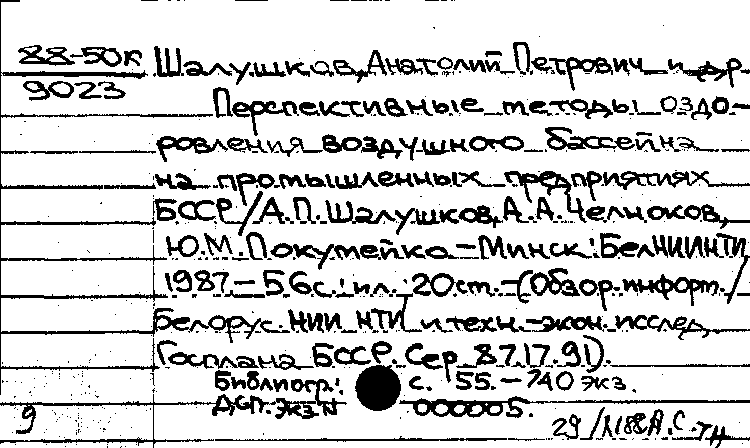 88-50к
9023
Шалушков, Анатолий Петрович и др.
Перспективные методы оздо-
ровления воздушного бассейна
на промышленных предприятиях
БССР/А.П.Шалушков, А.А.Челноков,
Ю.М.Покумейко – Минск: БелНИИНТИ
1987. – 56с.: ил.; 20см. – (Обзор. информ./
Белорус. НИИ НТИ и техн.-экон. исслед.
Госплана БССР. Сер 87.17.91).
Библиогр.: с. 55. – 740 экз.
ДСП. Экз N 000005.
9
29/